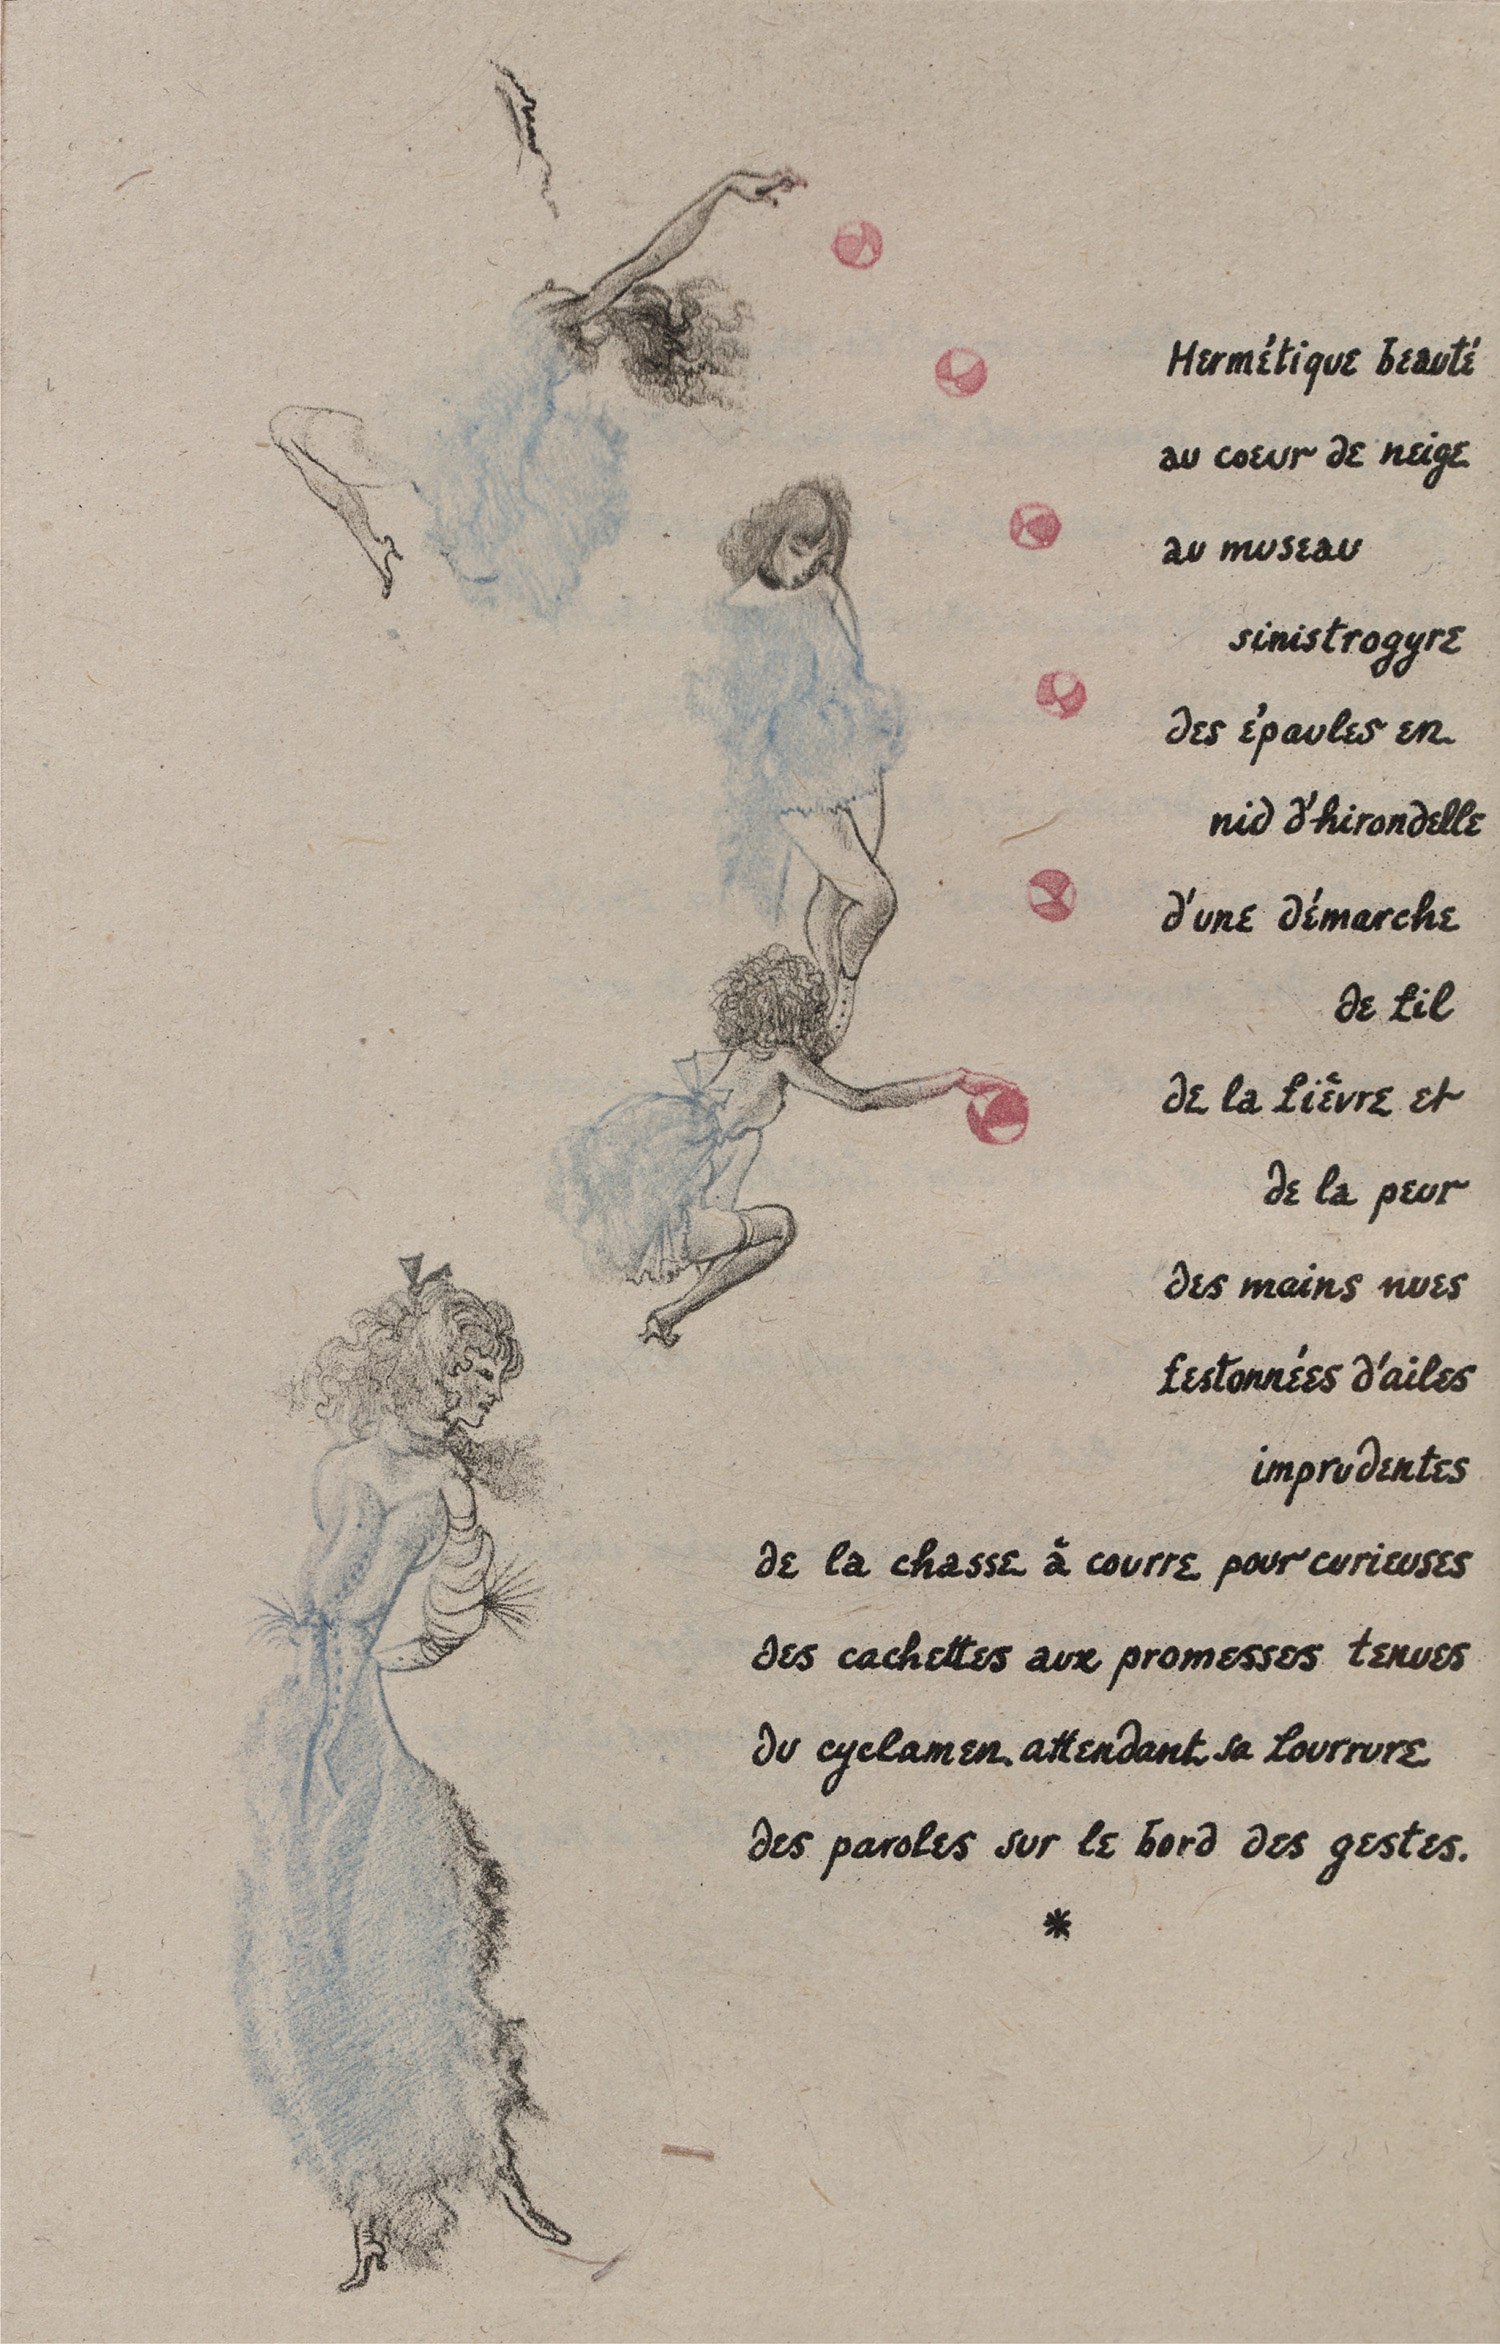 Hermétique beauté
au coeur de neige
au museau
sinistrogyre
des épaules en
nid d'hirondelle
d'une démarche
de fil
de la fièvre et
de la peur
des mains nues
festonnées d'ailes
imprudentes
de la chasse à courre pour curieuses
des cachettes aux promesses tenues
du cyclamen attendant sa fourrure
des paroles sur le bord des gestes.
*